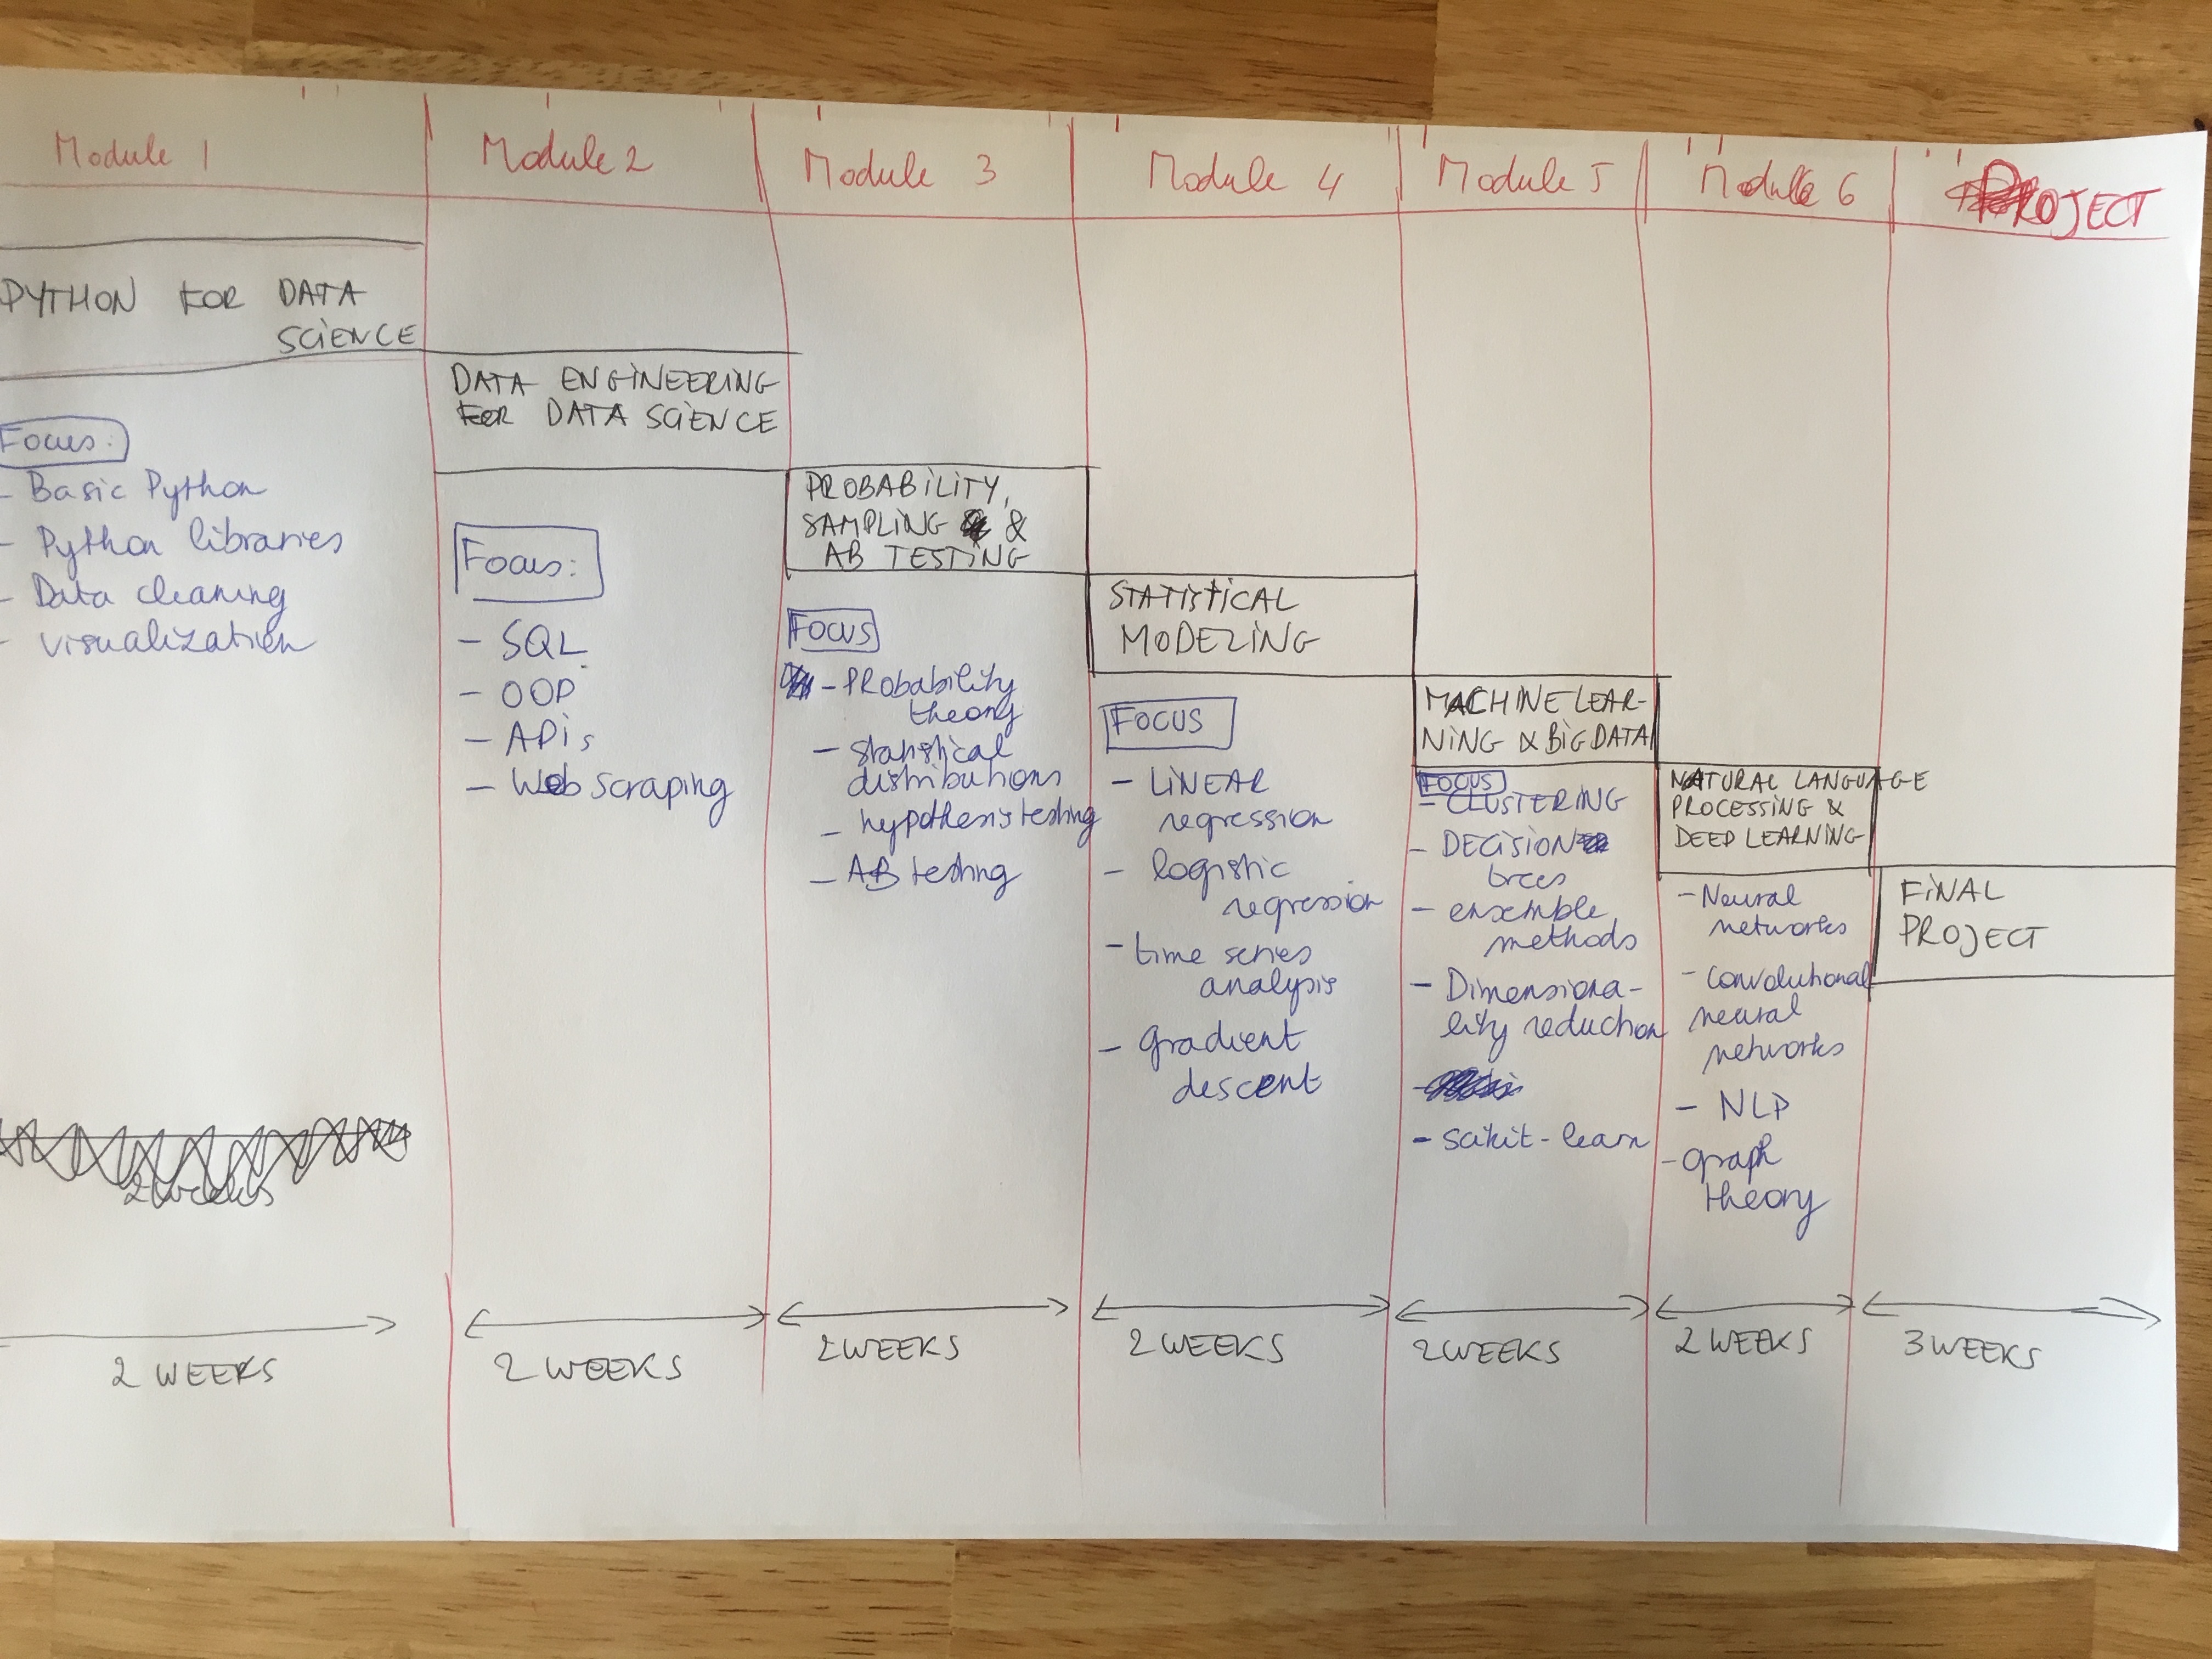 Module 1
Module 2
Module 3
Module 4
Module 5
Module 6
PROJECT
PYTHON FOR DATA
SCIENCE
Focus:
- Basic Python
- Python libraries
- Data cleaning
- visualization
2 weeks
2 WEEKS
DATA ENGINEERING
FOR DATA SCIENCE
Focus:
- SQL
- OOP
- APIs
- Web scraping
2 WEEKS
PROBABILITY,
SAMPLING &
AB TESTING
FOCUS
- PRobability
theory
- statistical
distributions
- hypothesis testing
- AB testing
2 WEEKS
STATISTICAL
MODELING
FOCUS
- LINEAR
regression
- logistic
regression
- time series
analysis
- gradient
descent
2 WEEKS
MACHINE LEAR-
NING & BIG DATA
FOCUS
- CLUSTERING
- DECISION
trees
- ensemble
methods
- Dimensiona-
lity reduction
- scikit-learn
2 WEEKS
NATURAL LANGUAGE
PROCESSING &
DEEP LEARNING
- Neural
networks
- Convolutional
neural
networks
- NLP
- graph
theory
2 WEEKS
FINAL
PROJECT
3 WEEKS